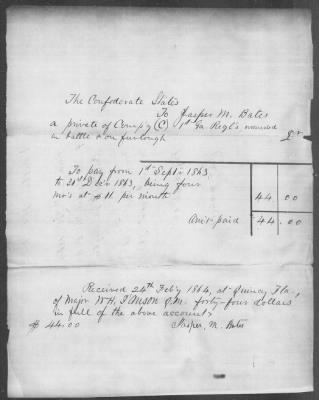 The Confederate States
To Jasper M. Bates
a private of Compy (C) 1st Ga Regl's wounded
in battle & on furlough Dr
To pay from 1st Sept 1863
to 31st Dec 1863, being four
mo's at $11 per month 44 00
Amt paid $44.00
Received 24th Feby 1864, at Quincy Fla.,
of Major W H, Q.M. forty-four dollars
in full of the above account,
$ 44.00 Jasper, M. Bates